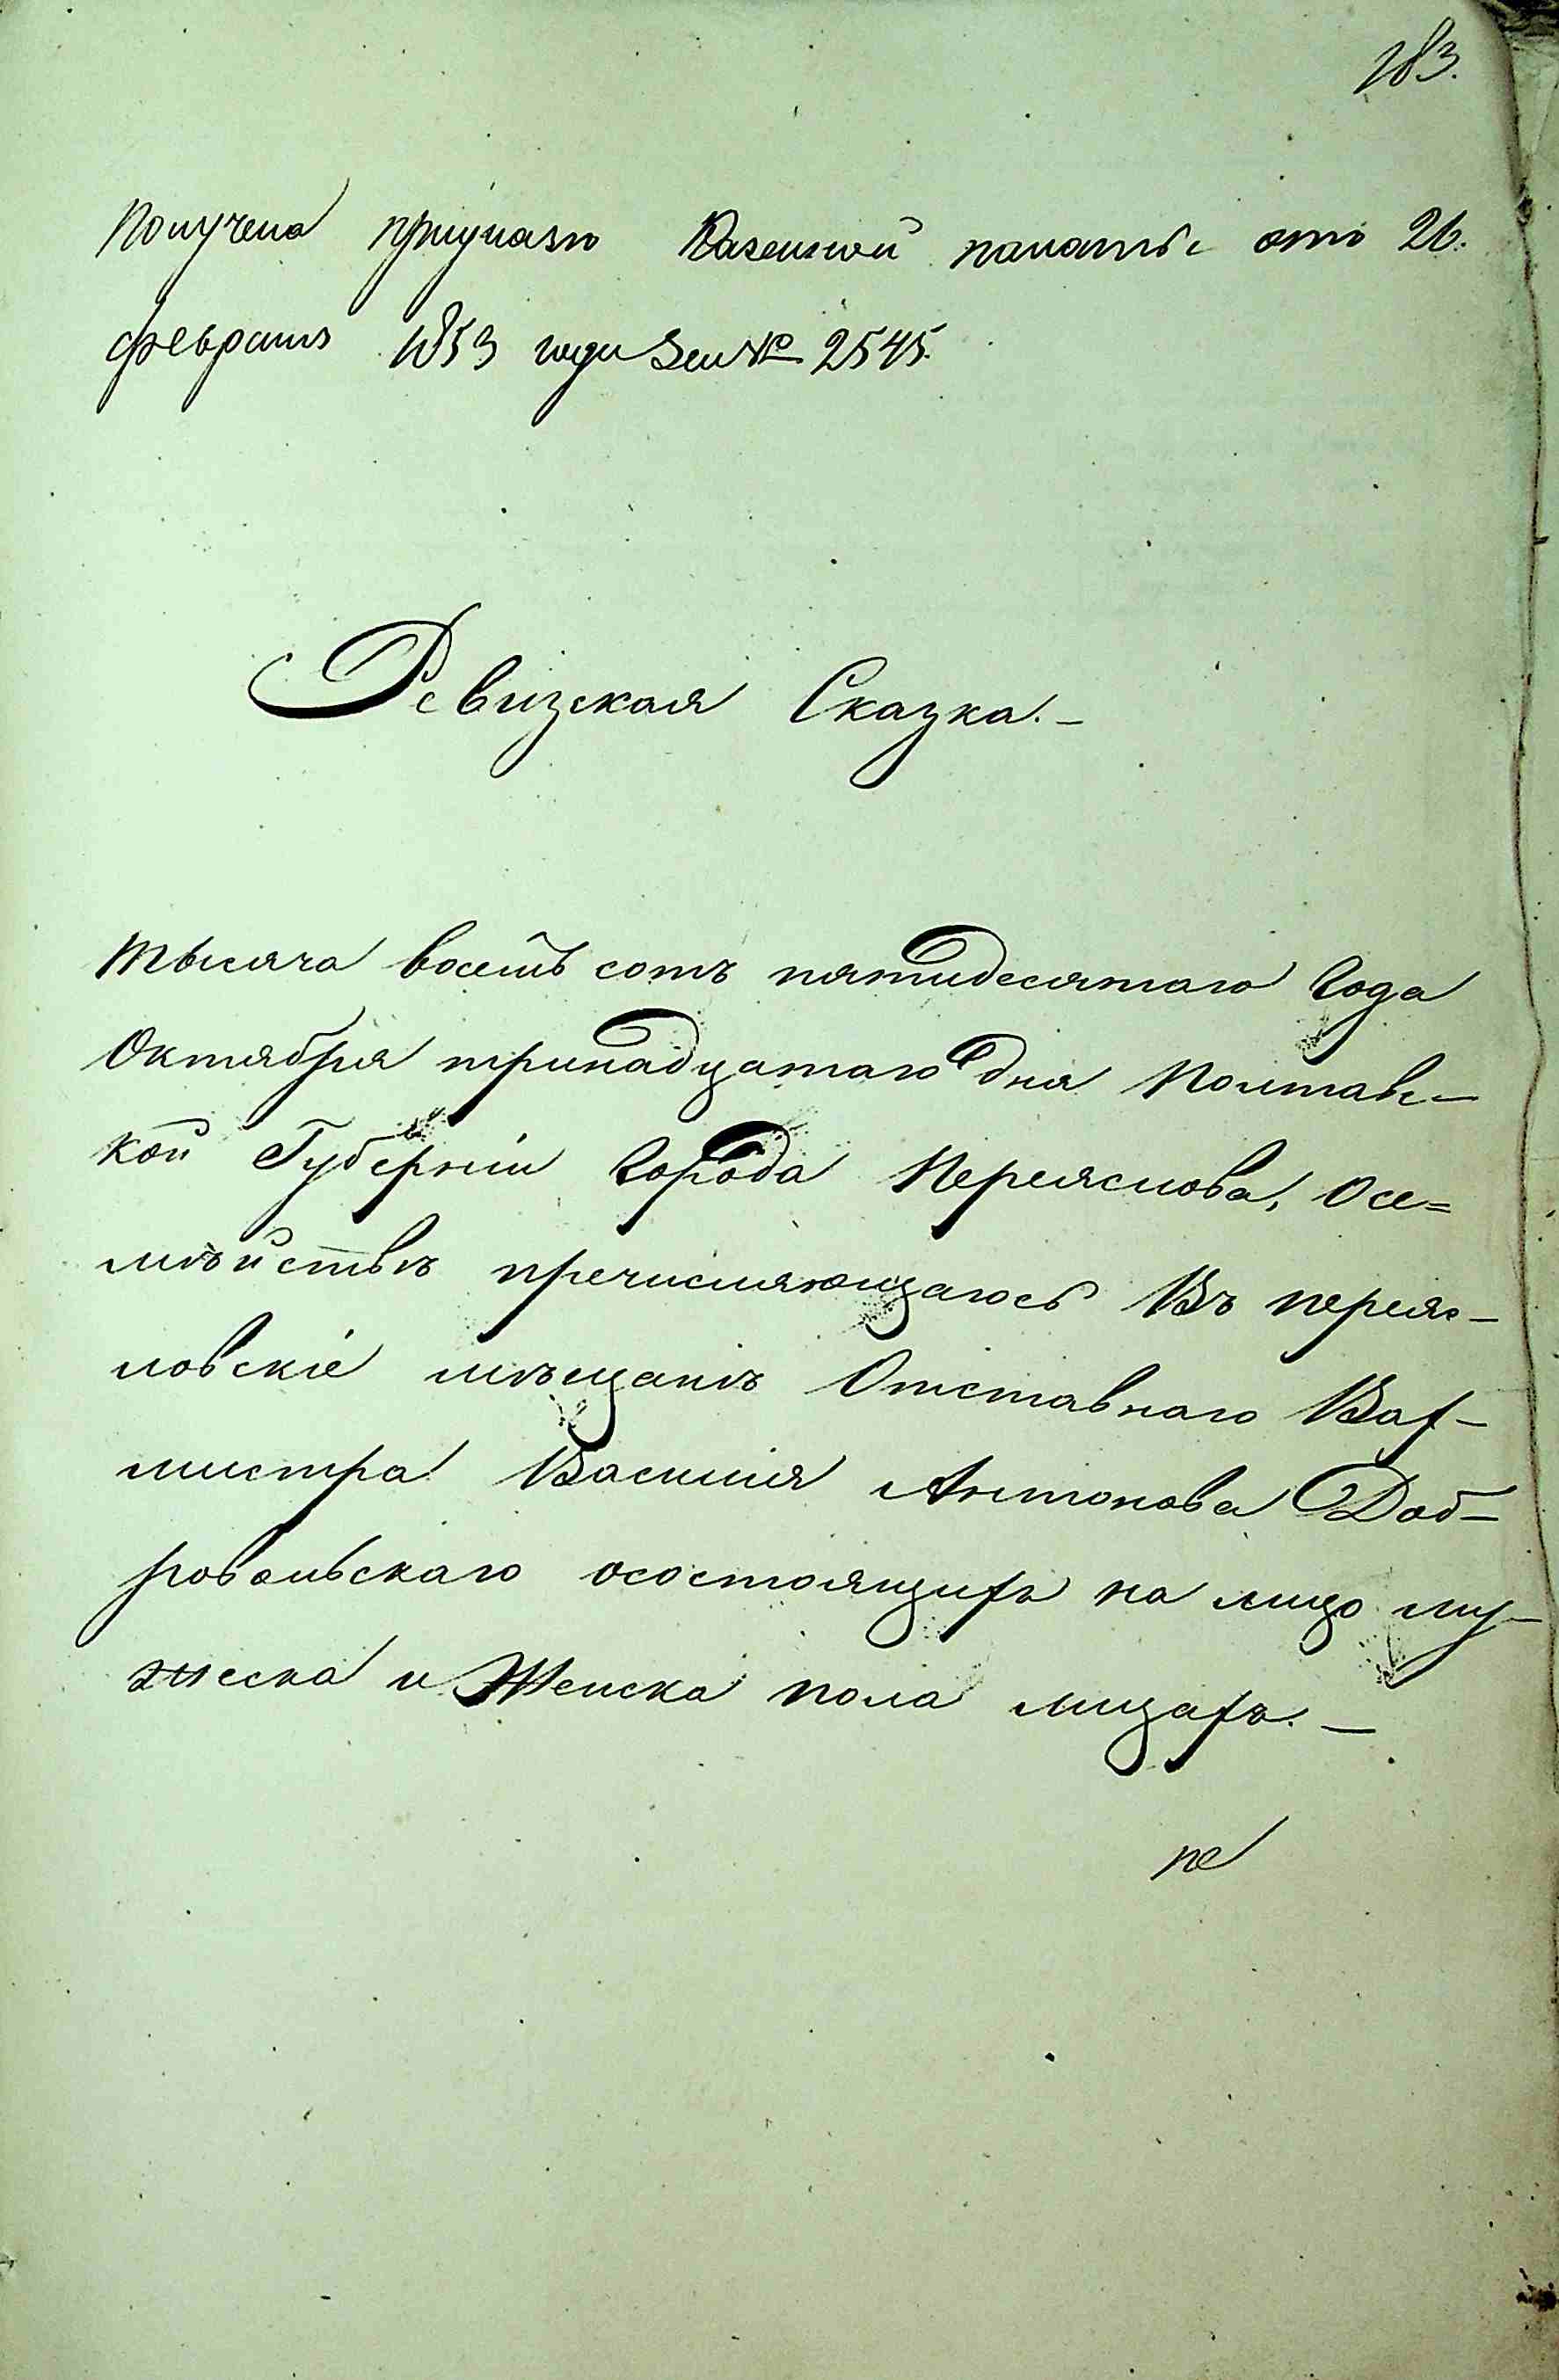 183.
Получена приуказѣ Казенной палаты отъ 26.
февраля 1853 года за № 2545.
Ревизская Сказка.–
Тысяча восемь сотъ пятидесятаго Года
Октября тринадцатаго дня Полтавс–
кой Губерніи Города Переяслова, осе=
мѣйствѣ пречисляющагось Въ переяс–
ловскіе мѣщанѣ Отставнаго Вах–
мистра Василія Антонова Доб–
ровольскаго осостоящихъ на лицо му–
жеска и Женска пола лицахъ.–